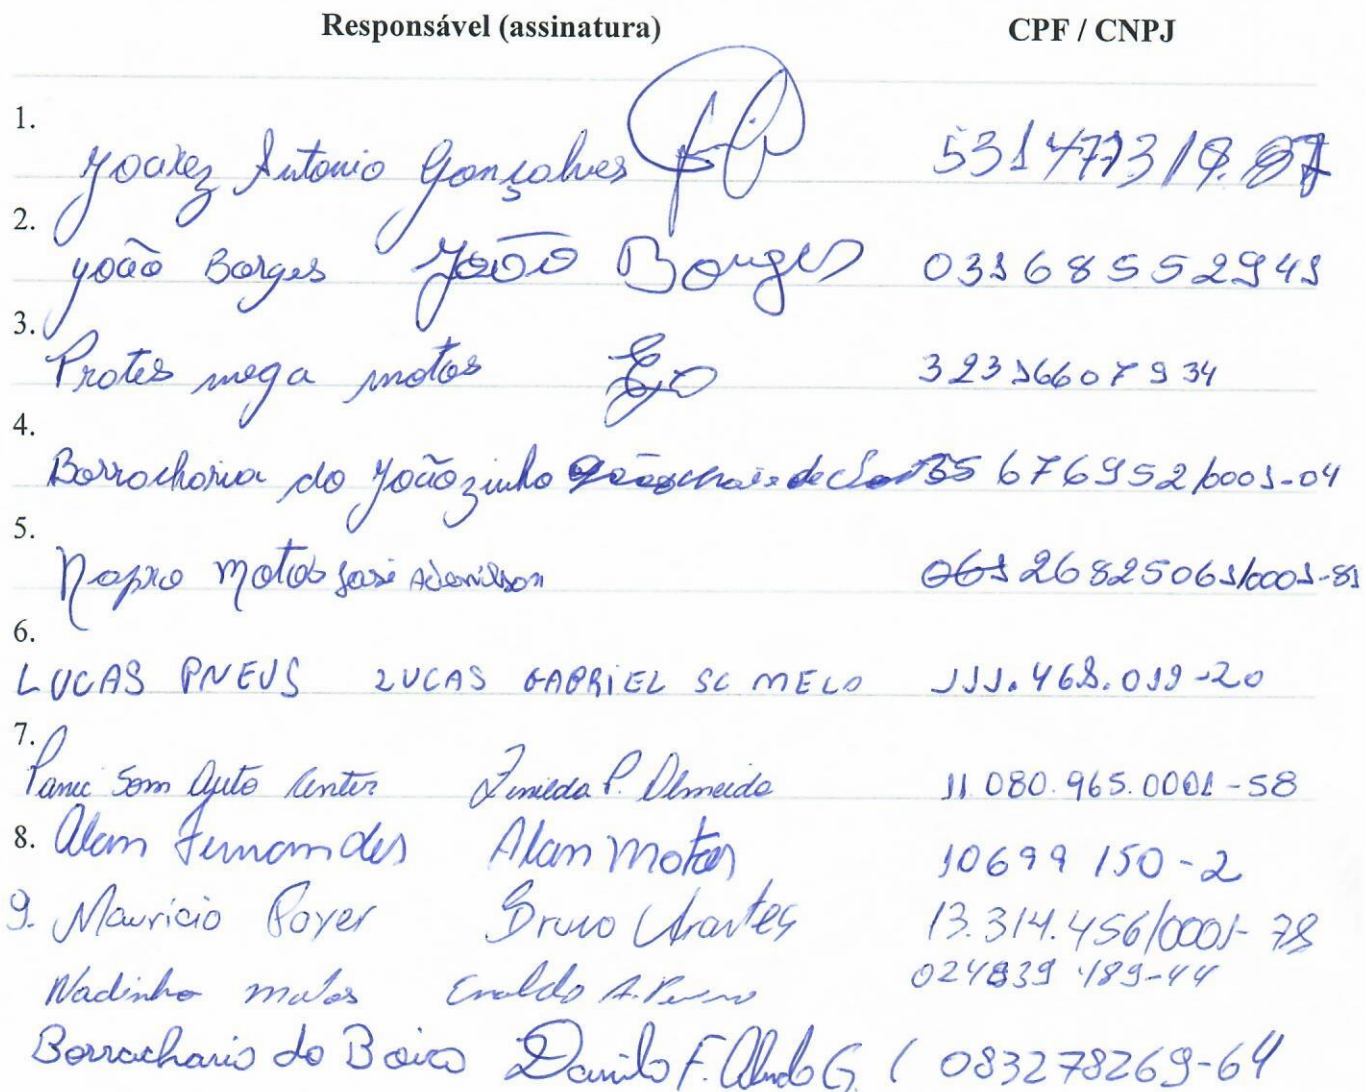 Responsável (assinatura) CPF / CNPJ
1.
Joarez Antonio Gonçalves 531477319.87
2.
João Borges João Borges 03168552941
3.
Protes mega motos 32316607934
4.
Borracharia do Joãozinho 35676952/0001-04
5.
Napro Motos José Adenilson 06126825061/0001-81
6.
LUCAS PNEUS LUCAS GABRIEL SC MELO 111.468.019-20
7.
Panic Som Auto Center Zenilda P. Almeida 11.080.965.0001-58
8. Alan Fernandes Alan Motos 10699150-2
9. Mauricio Poyer Bruno Arantes 13.314.456/0001-78
Nadinho motos Enaldo A. 024839189-44
Borracharia do Baico Danilo F. G. 083278269-64